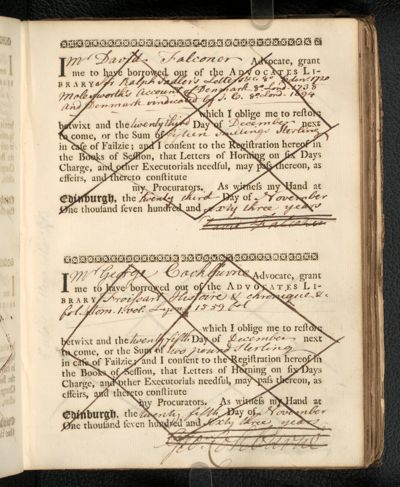 I Mr David Falconer Advocate, grant
me to have borrowed out of the ADVOCATES LI-
BRARY Sir Ralph Sadler's Letters 8º Edinr. 1720
Molesworth's Account of Denmark 8º Lond. 1738
and Denmark vindicated by J. C. 8º Lond. 1694
which I oblige me to restore
betwixt and the twenty third Day of December next
to come, or the Sum of fifteen Shillings Sterling
in case of Failzie; and I consent to the Registration hereof in
the Books of Session, that Letters of Horning on six Days
Charge, and other Executorials needful, may pass thereon, as
effeirs, and thereto constitute
my Procurators. As witness my Hand at
Edinburgh, the twenty third Day of November
One thousand seven hundred and sixty three years
David Falconer
I Mr George Cockburne Advocate, grant
me to have borrowed out of the ADVOCATES LI-
BRARY Froissart Histoire & chronique &c
fol. tom. 1. Lyon 1559
which I oblige me to restore
betwixt and the twenty fifth Day of December next
to come, or the Sum of two pound Sterling
in case of Failzie; and I consent to the Registration hereof in
the Books of Session, that Letters of Horning on six Days
Charge, and other Executorials needful, may pass thereon, as
effeirs, and thereto constitute
my Procurators. As witness my Hand at
Edinburgh, the twenty fifth Day of November
One thousand seven hundred and sixty three years
Geo. Cockburne